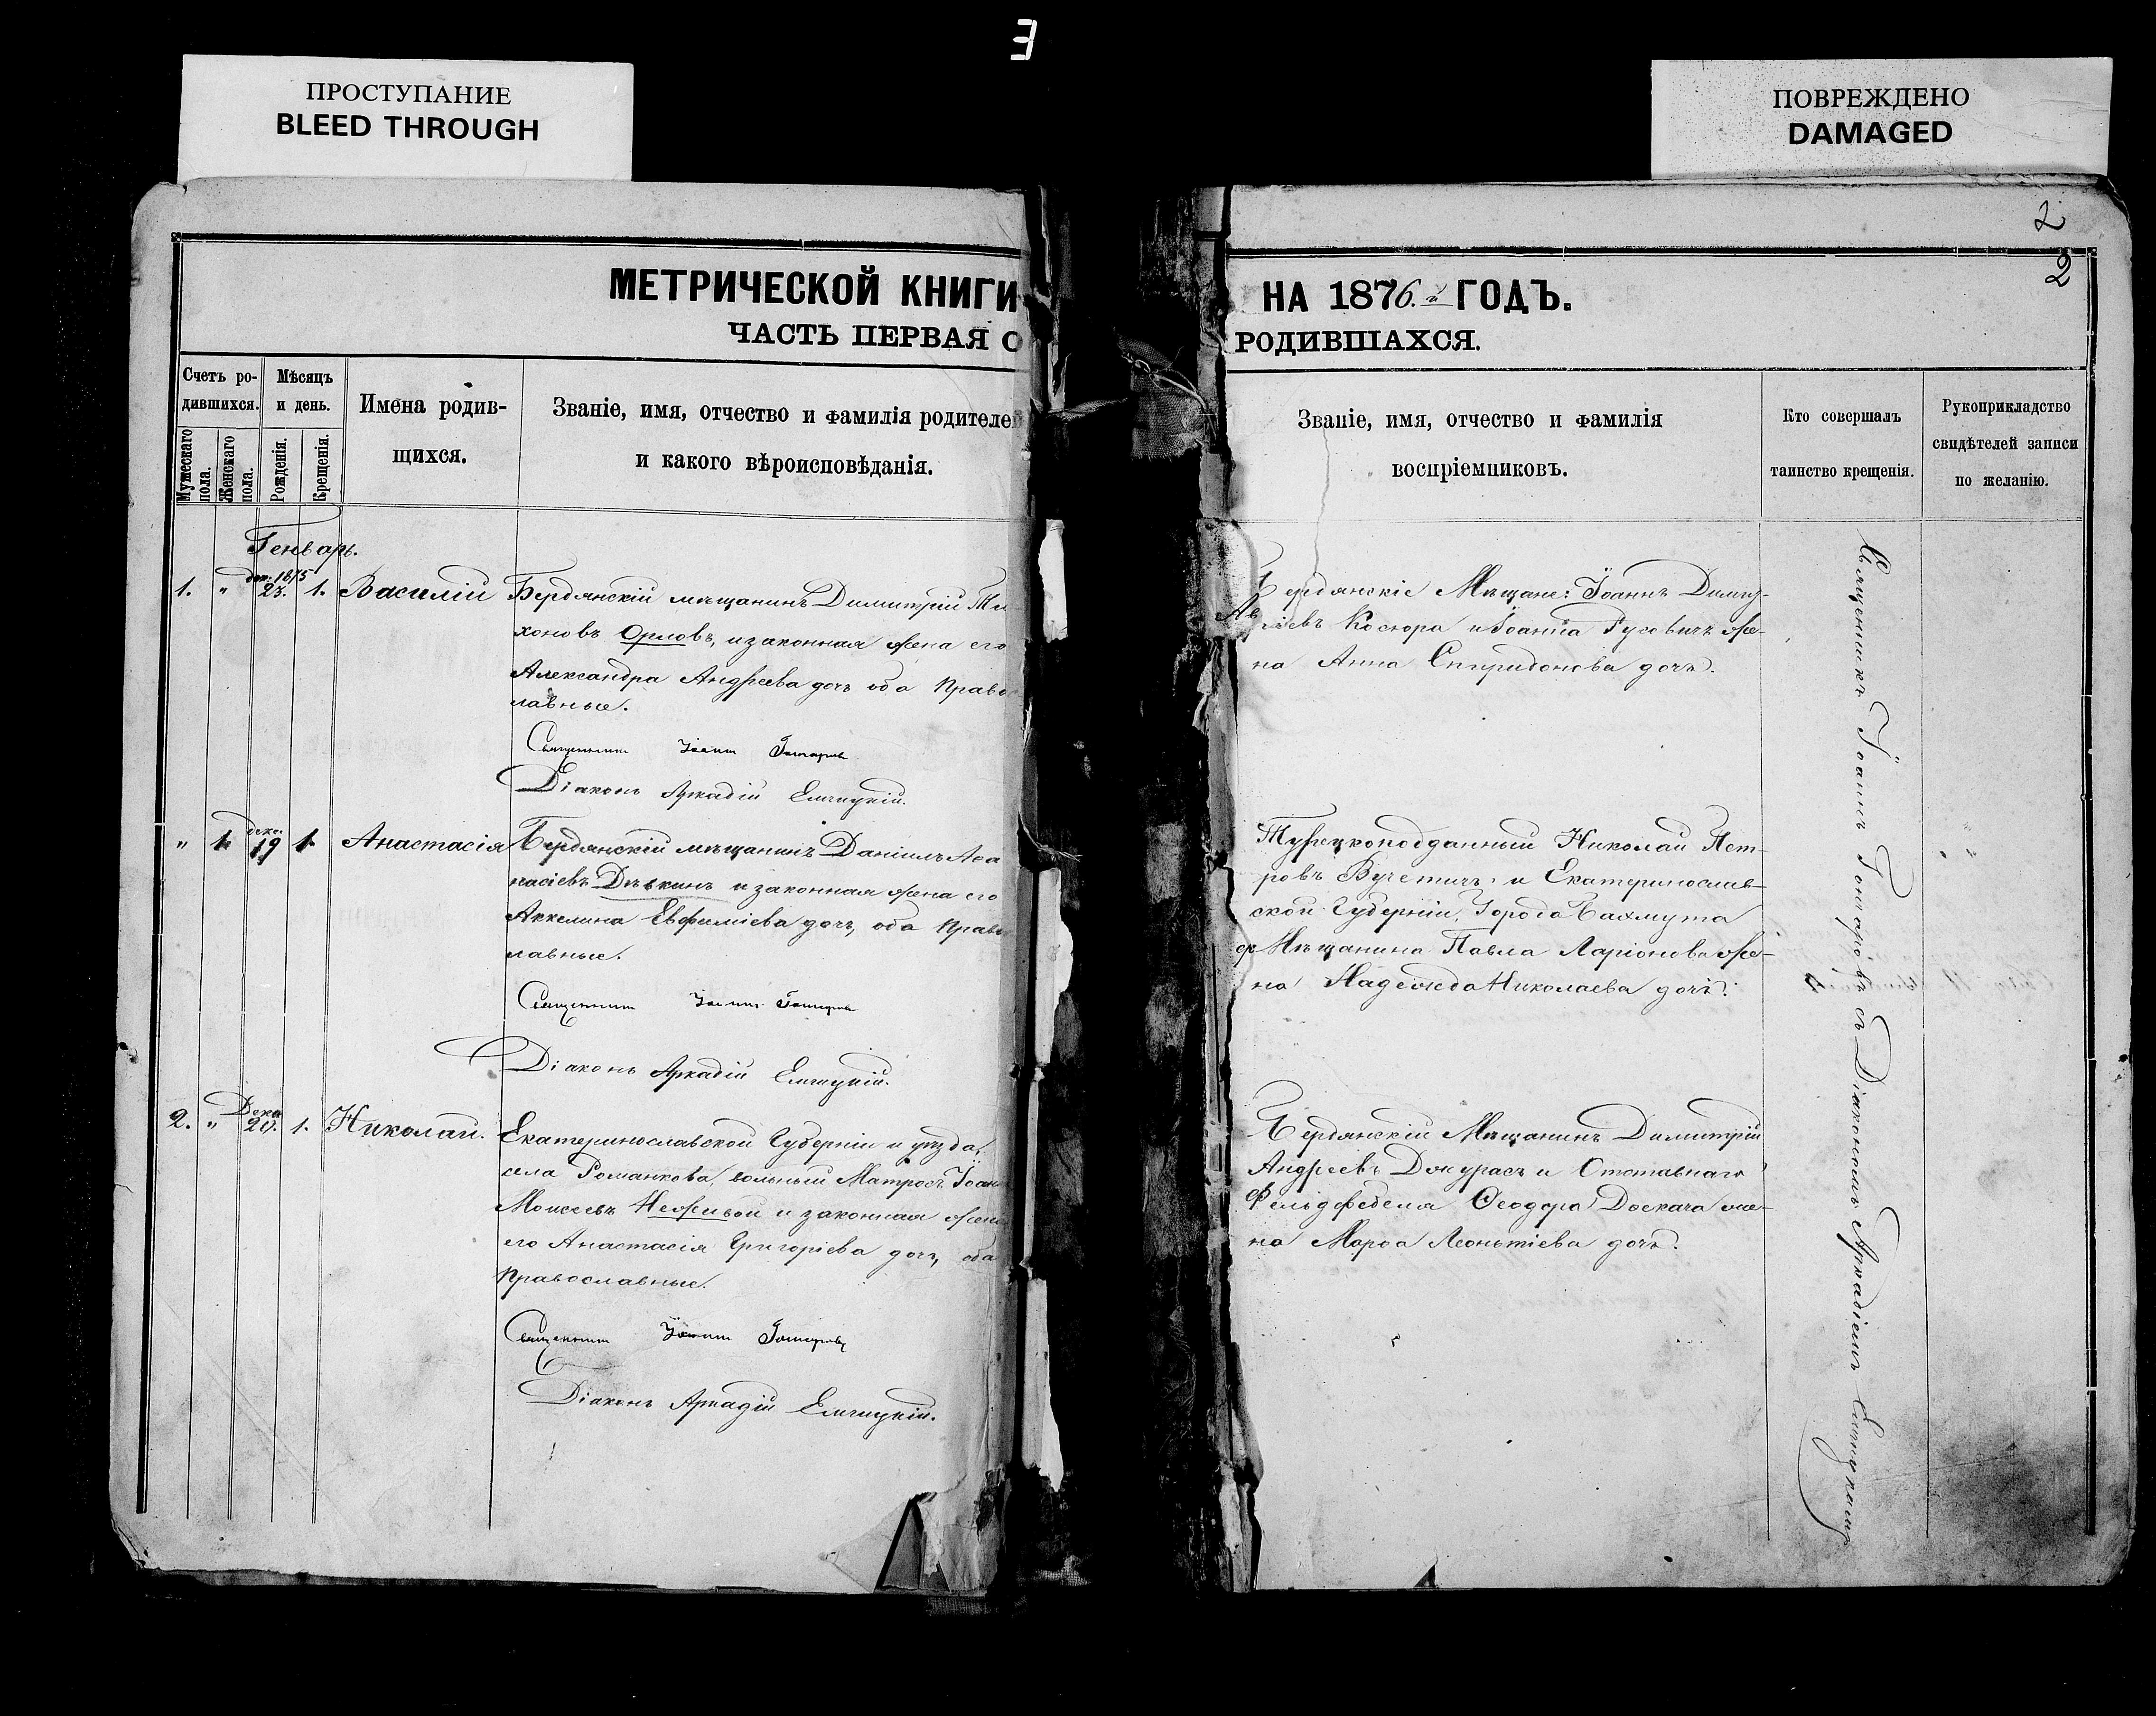 ПРОСТУПАНИЕ
BLEED THROUGH
ПОВРЕЖДЕНО
DAMAGED
2
2
МЕТРИЧЕСКОЙ КНИГИ
НА 1876.й ГОДЪ.
ЧАСТЬ ПЕРВАЯ О
РОДИВШАХСЯ.
Счетъ ро-
дившихся.
Мужескаго пола.
Женскаго пола.
Мѣсяцъ
и день.
Рожденія.
Крещенія.
Имена родив-
щихся.
Званіе, имя, отчество и фамилія родителей
и какого вѣроисповѣданія.
Званіе, имя, отчество и фамилія
воспріемниковъ.
Кто совершалъ
таинство крещенія.
Рукоприкладство
свидѣтелей записи
по желанію.
Генварь.
дек. 1875
1. " 23. 1. Василій
Бердянскій мѣщанинъ Димитрій Ти
хоновъ Орловъ, и законная жена его
Александра Андреева дочь оба Правос
лавные.
Священникъ Іоаннъ Гончаровъ
Діаконъ Аркадій Елчицкій.
Бердянскіе Мѣщане: Іоаннъ Димит-
ріевъ Косюра и Іоанна Гусовичъ же-
на Анна Спиридонова дочь.
дека.
" 1. 19 1. Анастасія
Бердянскій мѣщанинъ Даніилъ Аѳа
насіевъ и законная жена его
Акилина Евфиміева дочь, оба Право
лавные.
Священникъ Іоаннъ Гончаровъ
Діаконъ Аркадій Елчицкій.
Турецкоподданный Николай Пет-
ровъ Вучетичъ и Екатеринослав-
ской Губерніи, Города Бахмута
Мѣщанина Павла Ларіонова же-
на Надежда Николаева дочь.
Дека
2. " 20. 1. Николай.
Екатеринославской Губерніи и уѣзда,
села Романкова, вольный Матросъ Іоан
Моисеевъ Неживой и законная жена
его Анастасія Григоріева дочь, оба
Православные.
Священникъ Іоаннъ Гончаровъ
Діаконъ Аркадій Елчицкій.
Бердянскій Мѣщанинъ Димитрій
Андреевъ Докурасъ и Отставнаго
Фельдфебеля Ѳеодора Доскача же-
на Марѳа Леонтіева дочь.
Священникъ Іоаннъ Гончаровъ съ Діакономъ Аркадіемъ Елчицкимъ